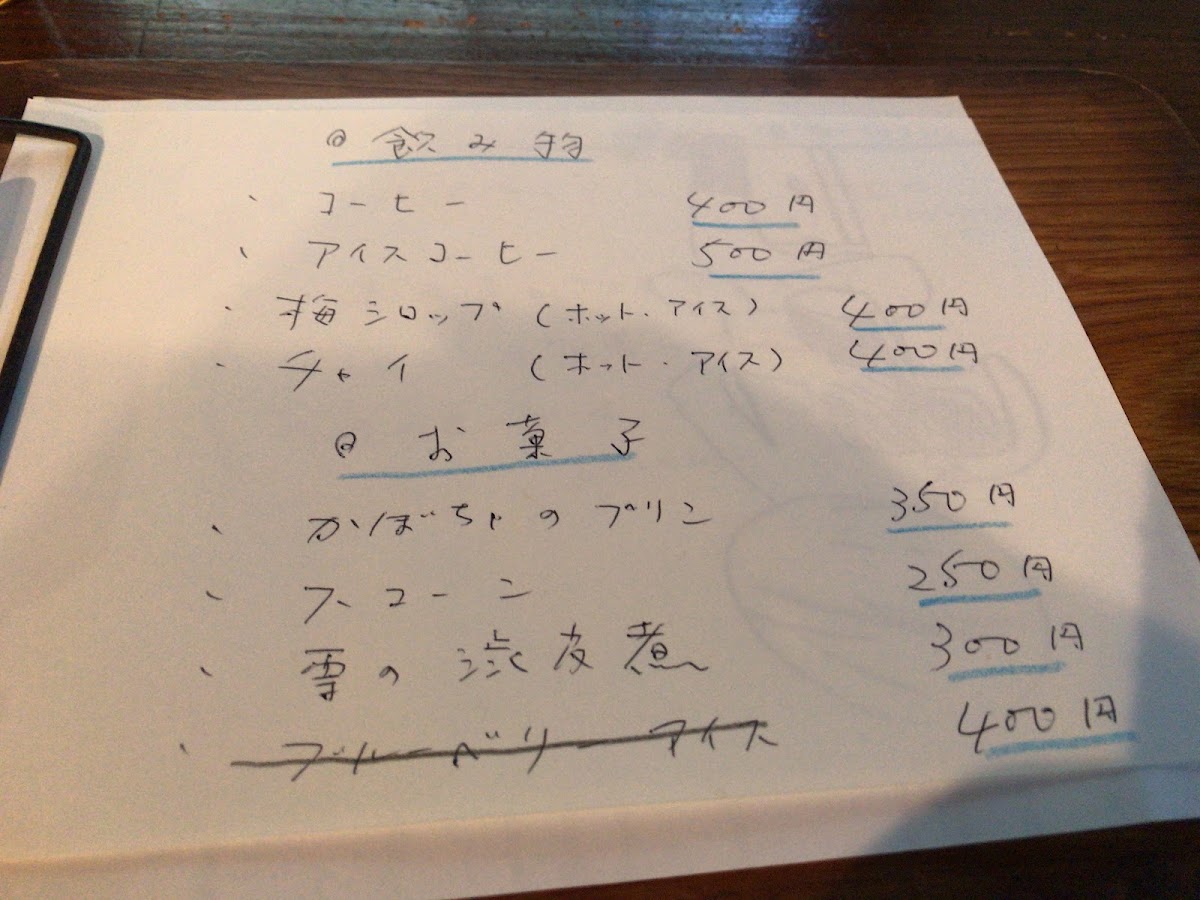 ◎ 飲み物
・ コーヒー 400円
・ アイスコーヒー 500円
・ 梅シロップ (ホット・アイス) 400円
・ チャイ (ホット・アイス) 400円
◎ お菓子
・ かぼちゃのプリン 350円
・ スコーン 250円
・ 雪の渋皮煮 300円
・ ブルーベリーアイス 400円